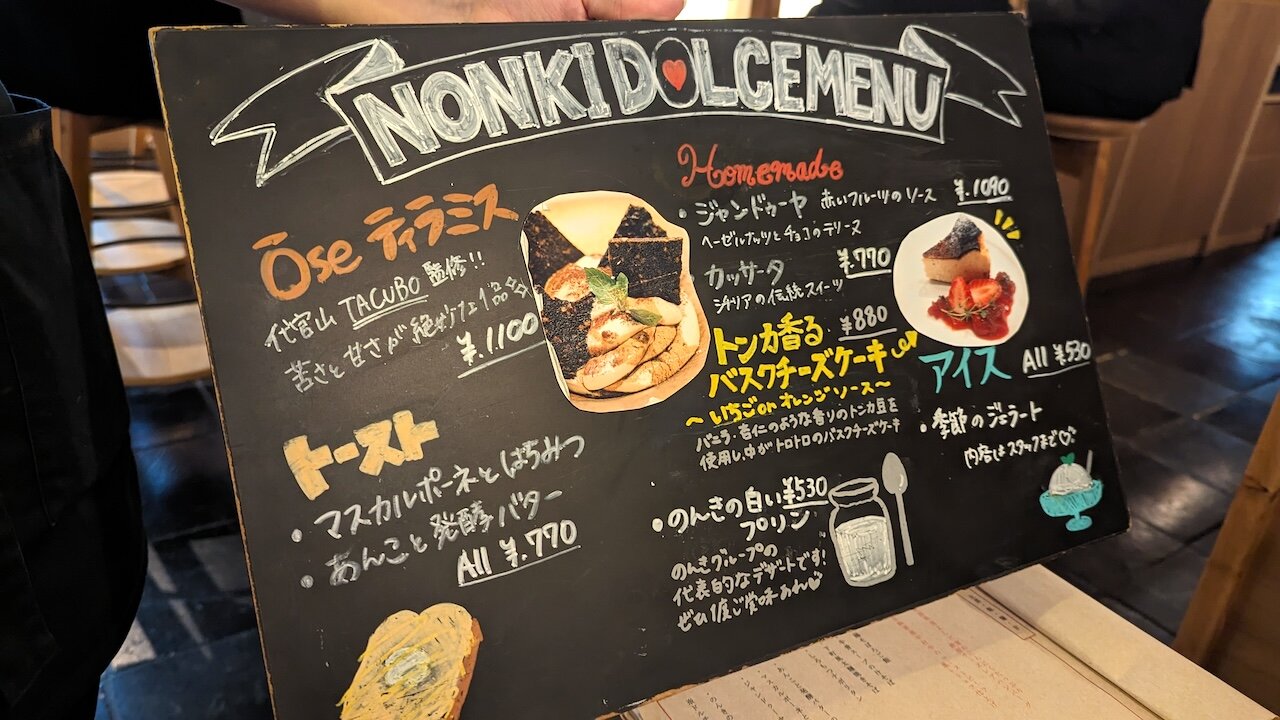 NONKI DOLCE MENU
Ōse ティラミス
代官山 TACUBO 監修!!
苦さと甘さが絶妙な1品
¥.1100
トースト
・マスカルポーネとはちみつ
・あんこと発酵バター
All ¥.770
Homemade
・ジャンドゥーヤ 赤いフルーツのソース ¥.1090
ヘーゼルナッツとチョコのテリーヌ
カッサータ ¥.770
シチリアの伝統スイーツ
トンカ香る ¥880
バスクチーズケーキ
〜いちごorオレンジソース〜
バニラ・杏仁のような香りのトンカ豆を
使用し、中がトロトロのバスクチーズケーキ
・のんきの白い ¥530
プリン
のんきグループの
代表的なデザートです!
ぜひ1度ご賞味あれ
アイス All ¥530
・季節のジェラート
内容はスタッフまで♡